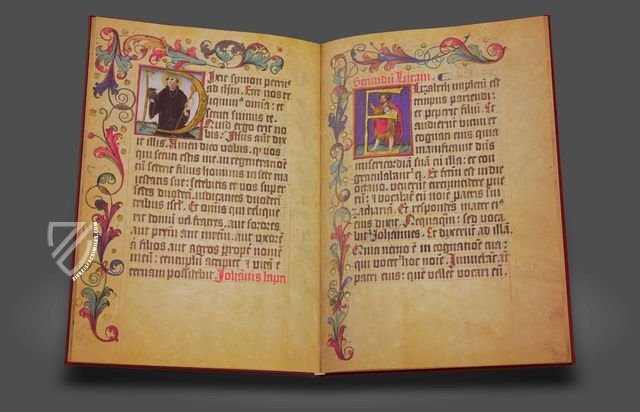 Dixit symon petrus
ad ihm. Ecce nos re
liquim⁹ omīa: et
secuti sumus te.
Quid ergo erit no
bis: Jhsus aut dix
it illis. Amen dico vobis. ꝙ vos
qui secuti estis me in regeneratiōe
cum sederit filius hominis in sede ma
iestatis sue: sedebitis et vos super
sedes duodeci iudicantes duodeci
tribus israhel. Et omis qui relique
rit domū vel fratres. aut sorores.
aut prēm aut mrēm. aut uxorē
aut filios aut agros propt nomē
meū: centuplū accipiet ⁊ vitā e
ternam possidebit. Johānis lapti
Secundū Lucam.
Elizabeth impletū est
tempus pariendi:
et peperit filiū. Et
audierūt vicini et
cognati eius quia
magnificavit dns
misericordiā suā cū illa: et con
gratulabant᷑ ei. Et factū est in die
octavo. venerūt circumcidere pue
rū: ⁊ vocabāt eū noīe patris sui
zachariā. Et respondens mater ei⁹
eius dixit. Nequaquā: sed voca
bit᷑ Johannes. Et dixerūt ad illā.
Quia nemo ē in cognatione tua:
qui vocet᷑ hoc noīe. Innuebāt aūt
patri eius: quē vellet vocari eū.
ZIEREIS FACSIMILES.COM